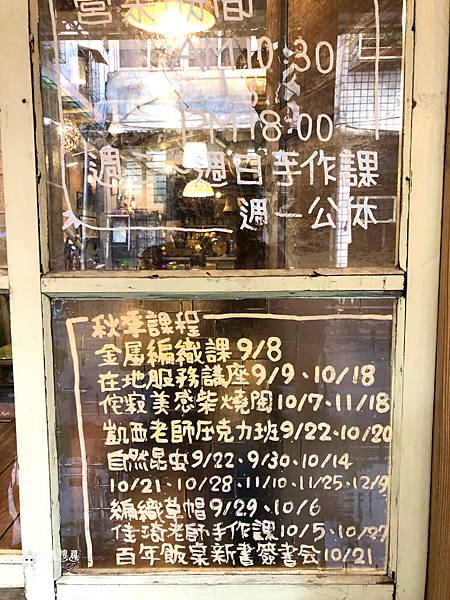 營業時間
AM10:30
PM18:00
週日手作課
週一公休
秋季課程
金屬編織課9/8
在地服務講座9/9、10/18
侘寂美感柴燒陶10/7、11/18
凱西老師壓克力班9/22、10/20
自然昆虫9/22、9/30、10/14
10/21、10/28、11/10、11/25、12/9
編織草帽9/29、10/6
佳琦老師手作課10/5、10/27
百年飯桌新書簽書会10/21